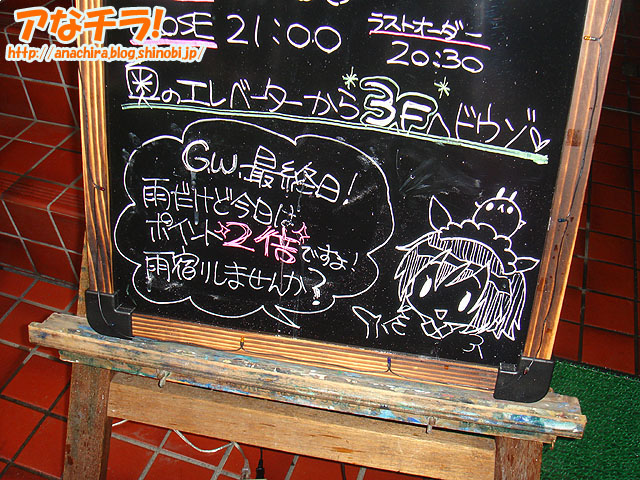 アなチラ!
http://anachira.blog.shinobi.jp/
21:00
ラストオーダー
20:30
奥のエレベーターから3Fヘドウゾ♡
GW最終日!
雨だけど今日は
ポイント2倍ですよ!
雨宿りしませんか?